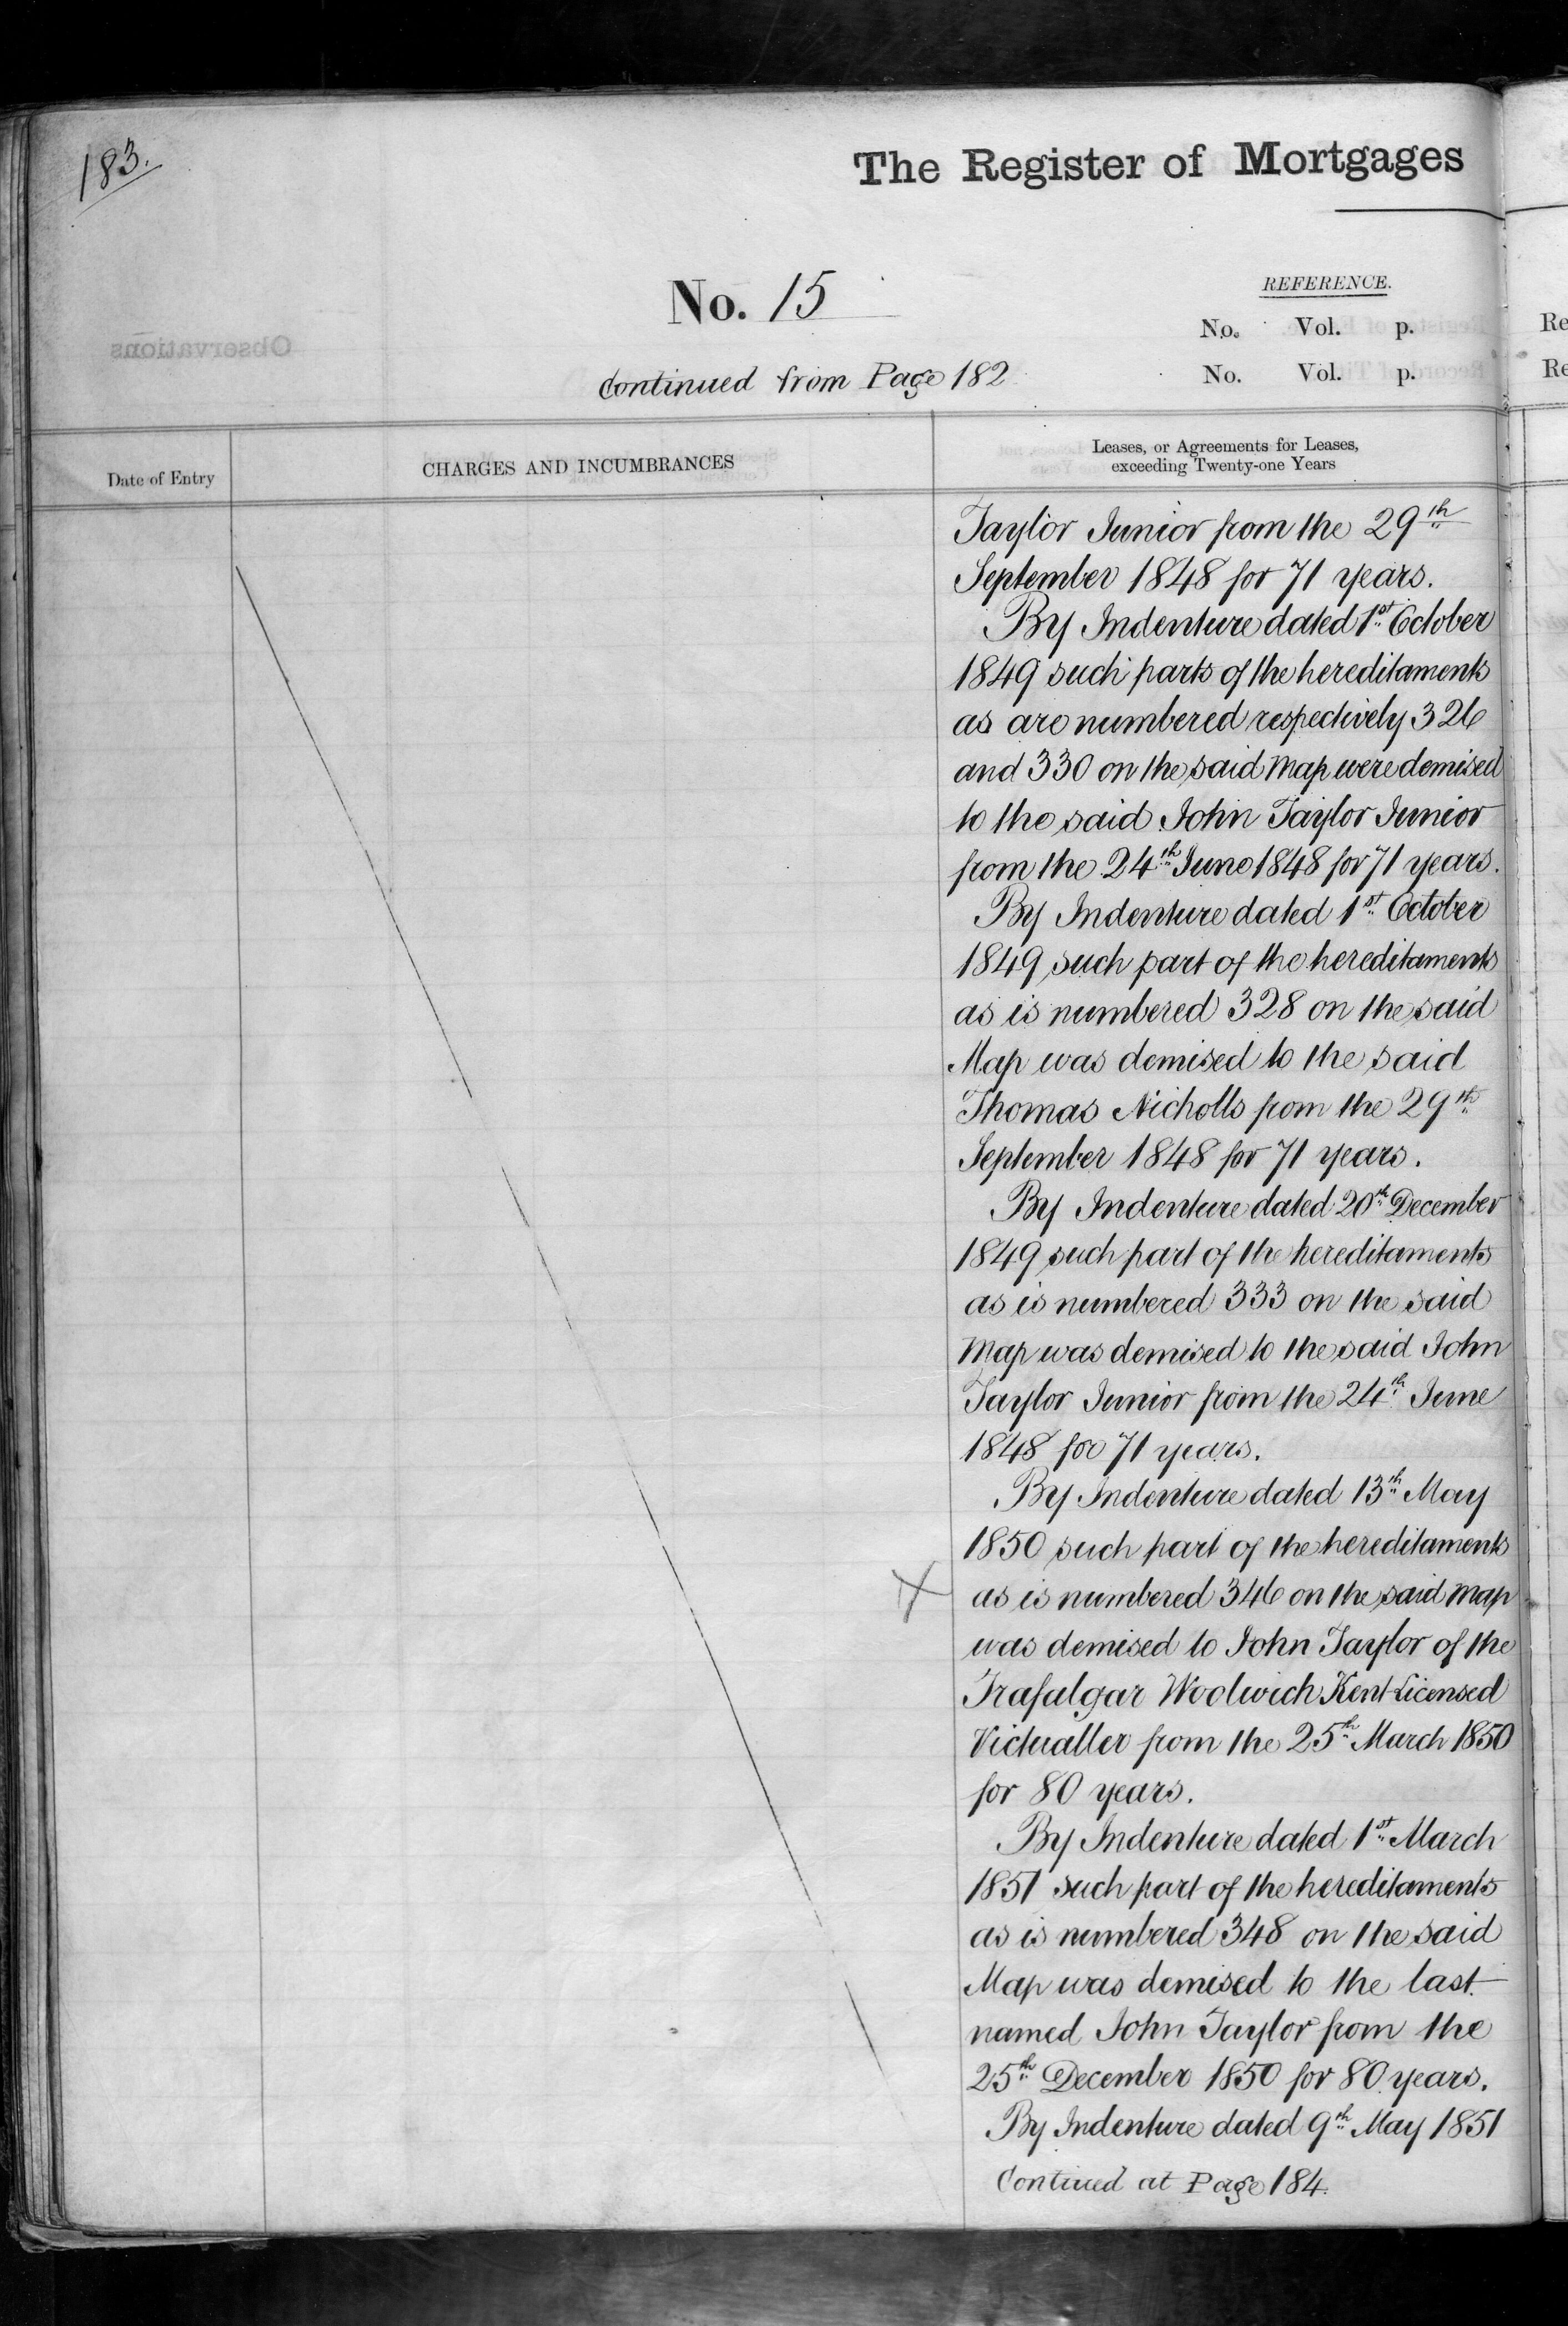 183.
The Register of Mortgages
No. 15
REFERENCE.
No. Vol. p.
No. Vol. p.
Continued from Page 182
Date of Entry
CHARGES AND INCUMBRANCES
Leases, or Agreements for Leases,
exceeding Twenty-one Years
Taylor Junior from the 29th
September 1848 for 71 years.
By Indenture dated 1st October
1849 such parts of the hereditaments
as are numbered respectively 326
and 330 on the said Map were demised
to the said John Taylor Junior
from the 24th June 1848 for 71 years.
By Indenture dated 1st October
1849 such part of the hereditaments
as is numbered 328 on the said
Map was demised to the said
Thomas Nicholls from the 29th
September 1848 for 71 years.
By Indenture dated 20th December
1849 such part of the hereditaments
as is numbered 333 on the said
Map was demised to the said John
Taylor Junior from the 24th June
1848 for 71 years.
By Indenture dated 13th May
1850 such part of the hereditaments
as is numbered 346 on the said Map
was demised to John Taylor of the
Trafalgar Woolwich Kent Licensed
Victualler from the 25th March 1850
for 80 years.
By Indenture dated 1st March
1851 such part of the hereditaments
as is numbered 348 on the said
Map was demised to the last
named John Taylor from the
25th December 1850 for 80 years.
By Indenture dated 9th May 1851
Contiued at Page 184.
Re
Re